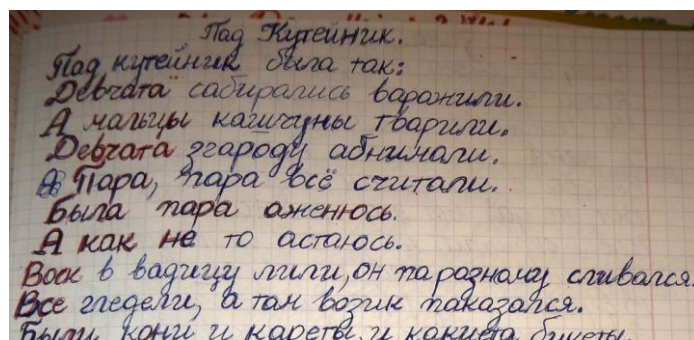 Пад Кутейник.
Пад кутейник была так:
Девчата сабирались варажили.
А мальцы кашчуны тварили.
Девчата згароду абнимали.
Пара, пара всё считали.
Была пара аженюсь.
А как не то астаюсь.
Воск в вадицу лили, он па разному сливался.
Все гледели, а там возик паказался.
Были кони и кареты, и какиета букеты.